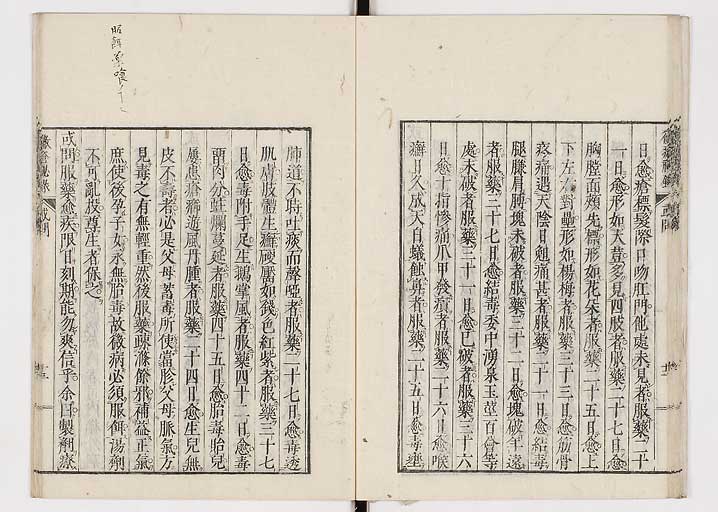 日愈瘡標髮際口吻肛門他處未見者服藥二十
一日愈形如大荳多見四肢者服藥二十七日愈
胸膛面頰先標形如花朵者服藥二十五日愈上
下左右對壘形如楊梅者服藥三十三日愈筋骨
疼痛遇天陰日尅痛甚者服藥二十一日愈結毒
腿臁肩膊塊未破者服藥三十二日愈塊破年遠
者服藥三十七日愈結毒委中湧泉玉莖百會等
處未破者服藥三十一日愈已破者服藥三十六
日愈十指慘痛爪甲發癀者服藥二十六日愈喉
癬日久成天白蟻蝕鼻者服藥二十五日愈毒埀
肺道不時吐痰而聲啞者服藥二十七日愈毒透
肌膚肢體生癬硬靨如錢色紅紫者服藥三十七
日愈毒附手足生鵝掌風者服藥四十二日愈毒
留肉分蛀爛蔓延者服藥四十五日愈胎毒胎兒
屢患瘡癤遊風丹腫者服藥二十四日愈生兒無
皮不毒者必是父母蓄毒所使當胗父母脈氣方
見毒之有無輕重然後服藥疎滌餘邪補益正氣
庶使後孕子女永無胎毒故黴病必須服餌湯劑
不可亂投尊生者保之
或問服藥愈疾限日刻期能勿爽信乎余曰製劑療
黴瘡秘錄
或問